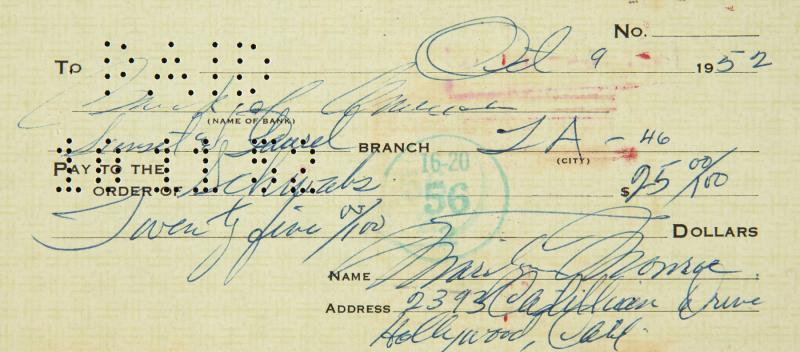 No.
To PAID Oct 9 1952
Bank of America
(NAME OF BANK)
Sunset & Laurel BRANCH LA - 46
(CITY)
16-20
56
PAY TO THE
ORDER OF Schwabs $25 00/100
Twenty five 00/100 DOLLARS
NAME Marilyn Monroe
ADDRESS 2393 Drive
Hollywood, Calif.